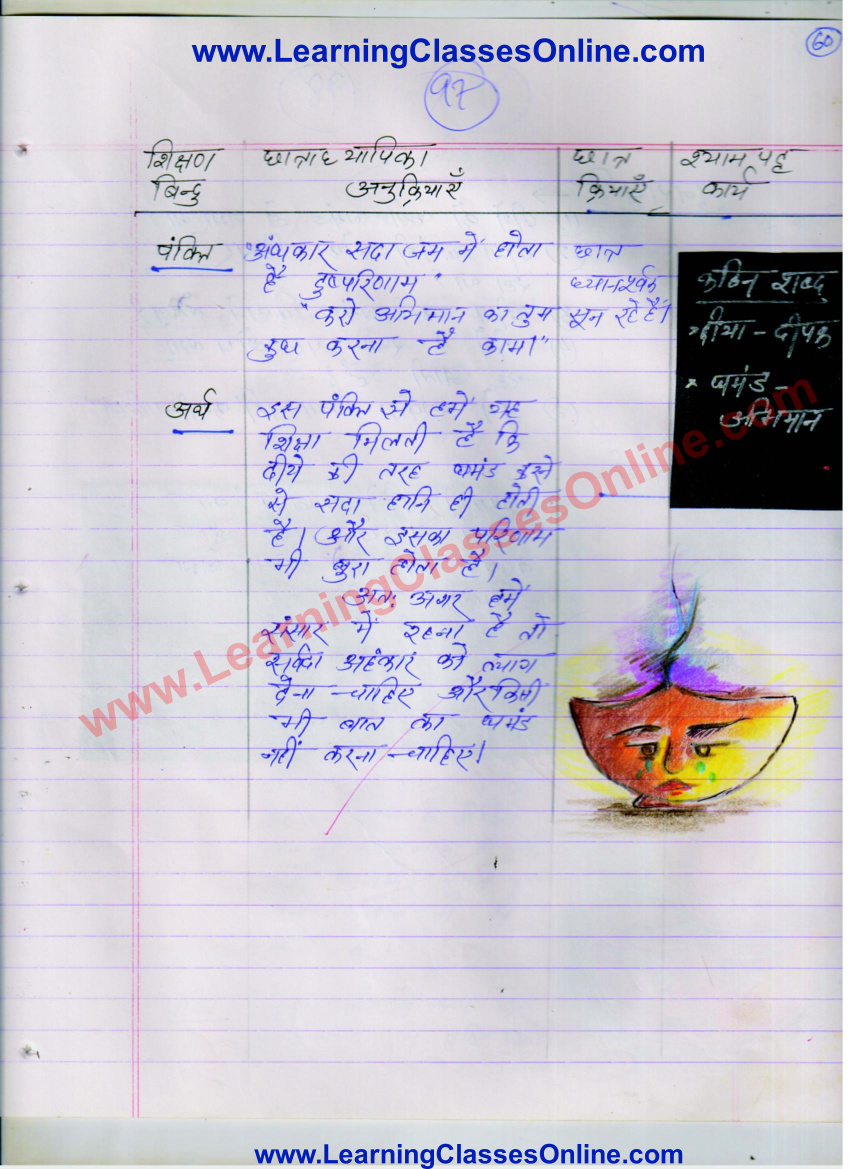 www.LearningClassesOnline.com
60
97
शिक्षण छात्राध्यापिका छात्र श्याम पट्ट
बिन्दु अनुक्रियाएँ क्रियाएँ कार्य
पंक्ति "अंधकार सदा जग में होता छात्र
है दुष्परिणाम" ध्यानपूर्वक
"करो अभिमान का तुम सून रहे हैं।
कुध करना है काम।"
कठिन शब्द
दीया - दीपक
घमंड -
अभिमान
अर्थ इस पंक्ति से हमें यह
शिक्षा मिलती है कि
दीये की तरह घमंड करने
से सदा हानि ही होती
है। और इसका परिणाम
भी बुरा होता है।
अतः अगर हमें
संसार में रहना है तो
सर्वदा अहंकार को त्याग
देना चाहिए और किसी
भी बात का घमंड
नहीं करना चाहिए।
www.LearningClassesOnline.com
www.LearningClassesOnline.com